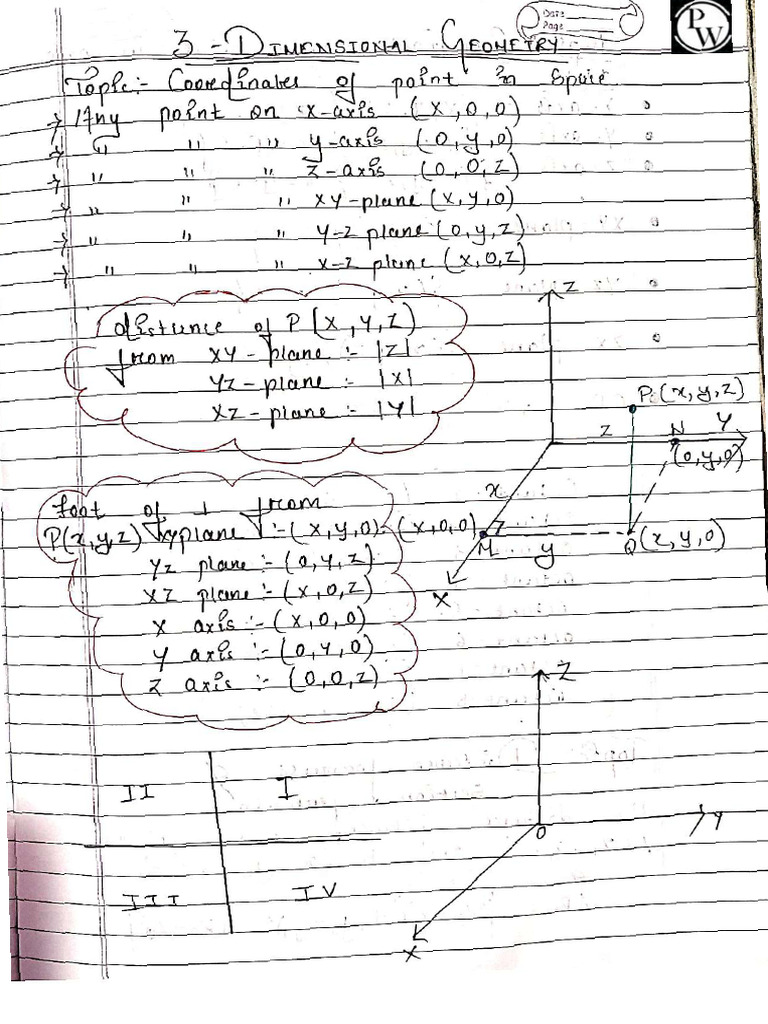 Date
Page
PW
3-DIMENSIONAL GEOMETRY
Topic:- Coordinates of point in Space
→ Any point on x-axis (x,0,0)
→ " " " y-axis (0,y,0)
→ " " " z-axis (0,0,z)
→ " " " xy-plane (x,y,0)
→ " " " y-z plane (0,y,z)
→ " " " x-z plane (x,0,z)
distance of P(x,y,z)
from xy-plane :- |z|
yz-plane :- |x|
xz-plane :- |y|
z
P(x,y,z)
z N y
(0,y,0)
x
foot of ⊥ from
P(x,y,z) xyplane :- (x,y,0)
(x,0,0) M y Q(x,y,0)
yz plane :- (0,y,z)
xz plane :- (x,0,z)
x
x axis :- (x,0,0)
y axis :- (0,y,0)
z axis :- (0,0,z)
z
II I
O y
III IV
x